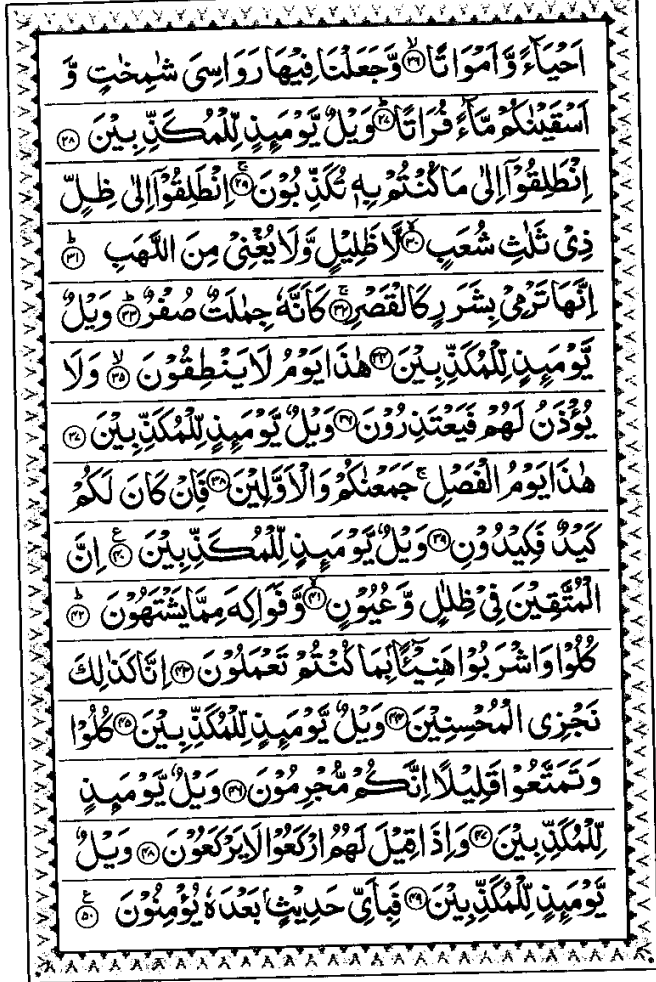 اَحْيَآءً وَّ اَمْوَاتًا ﴿۲۶﴾ وَّ جَعَلْنَا فِيْهَا رَوَاسِيَ شٰمِخٰتٍ وَّ
اَسْقَيْنٰكُمْ مَّآءً فُرَاتًا ﴿۲۷﴾ وَيْلٌ يَّوْمَىِٕذٍ لِّلْمُكَذِّبِيْنَ ﴿۲۸﴾
اِنْطَلِقُوْۤا اِلٰى مَا كُنْتُمْ بِهٖ تُكَذِّبُوْنَ ۚ ﴿۲۹﴾ اِنْطَلِقُوْۤا اِلٰى ظِلٍّ
ذِيْ ثَلٰثِ شُعَبٍ ﴿۳۰﴾ لَّا ظَلِيْلٍ وَّ لَا يُغْنِيْ مِنَ اللَّهَبِ ؕ ﴿۳۱﴾
اِنَّهَا تَرْمِيْ بِشَرَرٍ كَالْقَصْرِ ۚ ﴿۳۲﴾ كَاَنَّهٗ جِمٰلَتٌ صُفْرٌ ؕ ﴿۳۳﴾ وَيْلٌ
يَّوْمَىِٕذٍ لِّلْمُكَذِّبِيْنَ ﴿۳۴﴾ هٰذَا يَوْمُ لَا يَنْطِقُوْنَ ۙ ﴿۳۵﴾ وَ لَا
يُؤْذَنُ لَهُمْ فَيَعْتَذِرُوْنَ ﴿۳۶﴾ وَيْلٌ يَّوْمَىِٕذٍ لِّلْمُكَذِّبِيْنَ ﴿۳۷﴾
هٰذَا يَوْمُ الْفَصْلِ ۚ جَمَعْنٰكُمْ وَ الْاَوَّلِيْنَ ﴿۳۸﴾ فَاِنْ كَانَ لَكُمْ
كَيْدٌ فَكِيْدُوْنِ ﴿۳۹﴾ وَيْلٌ يَّوْمَىِٕذٍ لِّلْمُكَذِّبِيْنَ ﴿۴۰﴾ ع اِنَّ
الْمُتَّقِيْنَ فِيْ ظِلٰلٍ وَّ عُيُوْنٍ ﴿۴۱﴾ وَّ فَوَاكِهَ مِمَّا يَشْتَهُوْنَ ؕ ﴿۴۲﴾
كُلُوْا وَ اشْرَبُوْا هَنِيْٓـًٔۢا بِمَا كُنْتُمْ تَعْمَلُوْنَ ﴿۴۳﴾ اِنَّا كَذٰلِكَ
نَجْزِي الْمُحْسِنِيْنَ ﴿۴۴﴾ وَيْلٌ يَّوْمَىِٕذٍ لِّلْمُكَذِّبِيْنَ ﴿۴۵﴾ كُلُوْا
وَ تَمَتَّعُوْا قَلِيْلًا اِنَّكُمْ مُّجْرِمُوْنَ ﴿۴۶﴾ وَيْلٌ يَّوْمَىِٕذٍ
لِّلْمُكَذِّبِيْنَ ﴿۴۷﴾ وَ اِذَا قِيْلَ لَهُمُ ارْكَعُوْا لَا يَرْكَعُوْنَ ﴿۴۸﴾ وَيْلٌ
يَّوْمَىِٕذٍ لِّلْمُكَذِّبِيْنَ ﴿۴۹﴾ فَبِاَيِّ حَدِيْثٍۭ بَعْدَهٗ يُؤْمِنُوْنَ ﴿۵۰﴾ ع